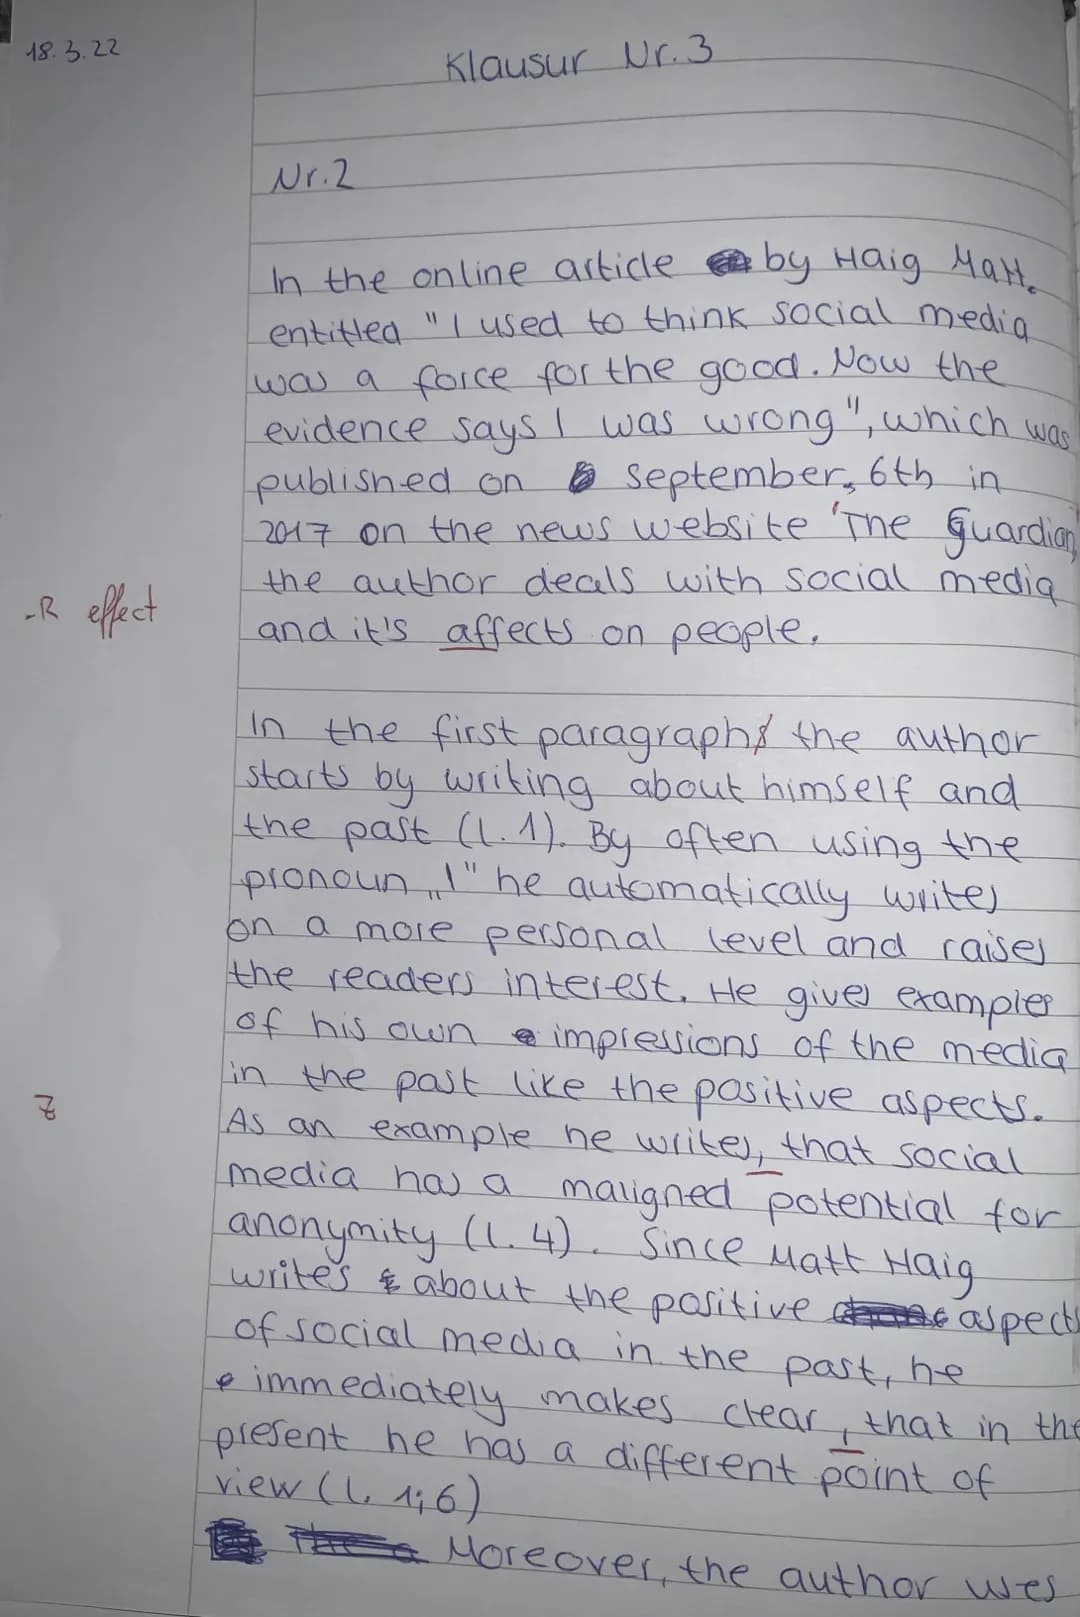 18.3.22
Klausur Nr.3
Nr.2
In the online article by Haig Matt,
entitled "I used to think social media
was a force for the good. Now the
evidence says I was wrong", which was
published on september, 6th in
2017 on the news website 'The Guardian,
the author deals with social media
-R effect
and it's affects on people.
In the first paragraphs the author
starts by writing about himself and
the past (l.1). By often using the
pronoun „I" he automatically writes
on a more personal level and raises
the readers interest. He gives examples
of his own impressions of the media
in the past like the positive aspects.
Z
As an example he writes, that social
media has a maligned potential for
anonymity (l.4). Since Matt Haig
writes about the positive aspects
of social media in the past, he
immediately makes clear, that in the
present he has a different point of
view (l. 1;6)
Moreover, the author uses